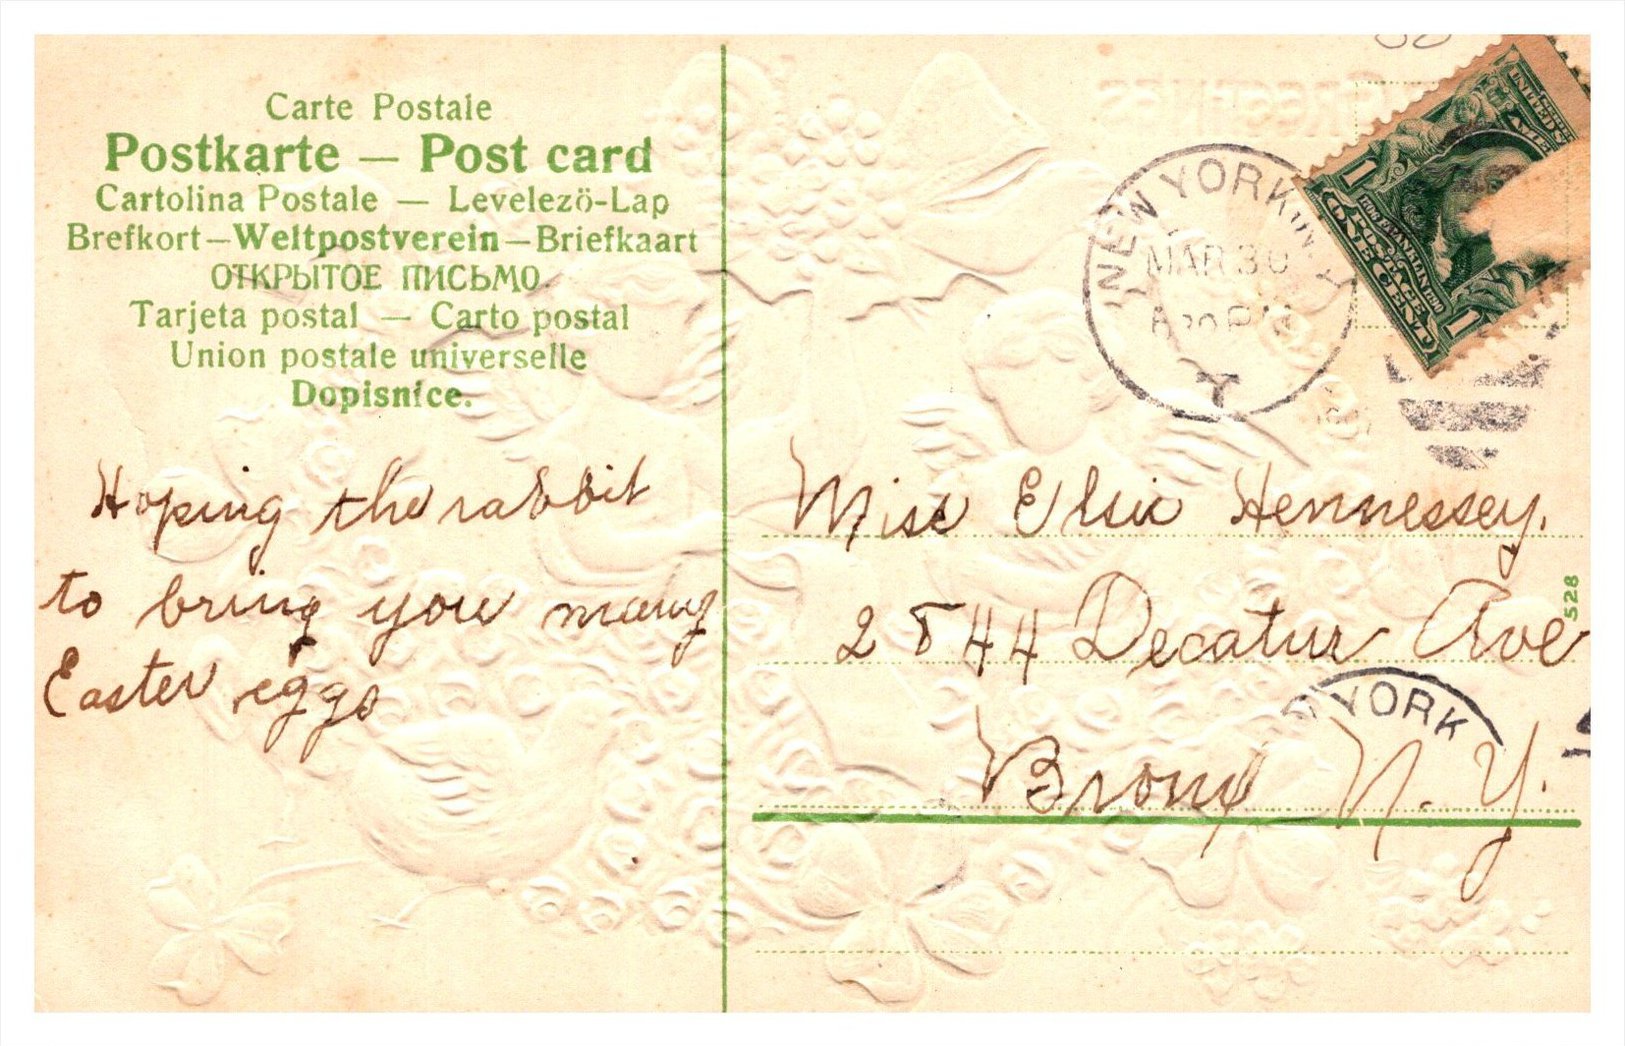 Carte Postale
Postkarte — Post card
Cartolina Postale — Levelezö-Lap
Brefkort—Weltpostverein—Briefkaart
ОТКРЫТОЕ ПИСЬМО.
Tarjeta postal — Carto postal
Union postale universelle
Dopisnice.
Hoping the rabbit
to bring you many
Easter eggs
GREETINGS
NEW YORK, N.Y.
MAR 30
PM
Y
UNITED
1 1
1706 FRANKLIN 1790
POSTAGE
ONE CENT
Miss Elsie Hennessey.
2844 Decatur Ave
Bronx N. Y.
528
YORK